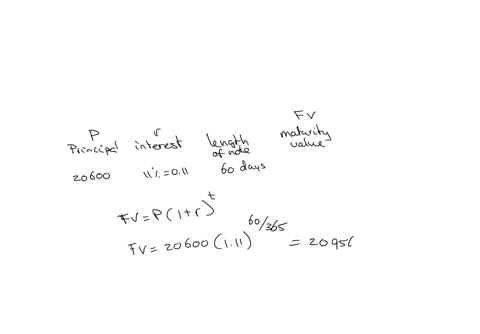 FV
P r length maturity
Principal interest of note value
20600 11%=0.11 60 days
FV=P(1+r)^t
FV=20600(1.11)^60/365 = 20956